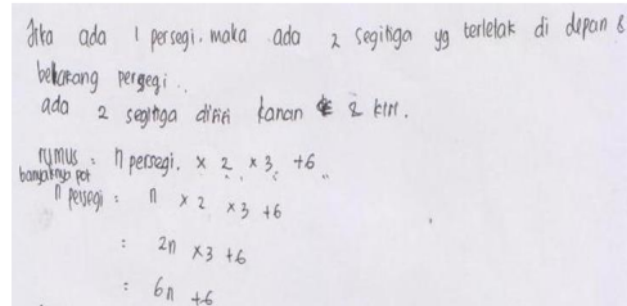 Jika ada 1 persegi. maka ada 2 segitiga yg terletak di depan &
belakang persegi..
ada 2 segitiga disisi kanan & kiri.
rumus : n persegi. × 2 × 3 +6
banyaknya pot
n persegi : n × 2 × 3 +6
: 2n × 3 +6
: 6n +6